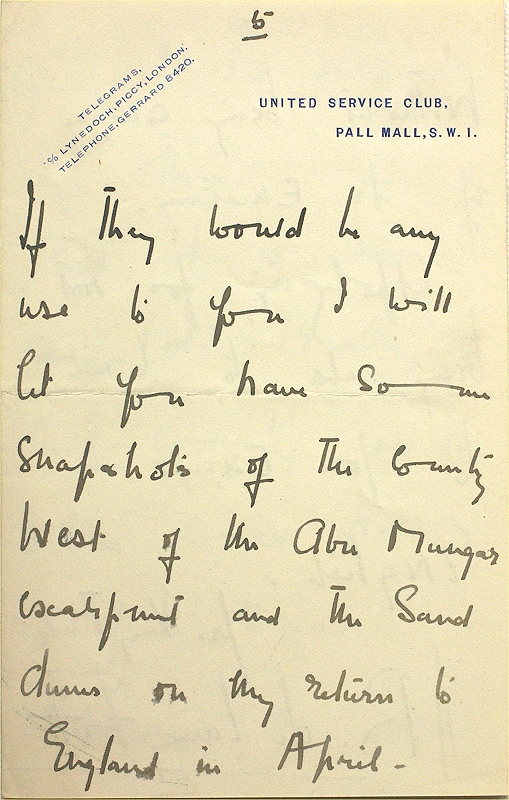 5
TELEGRAMS,
c/o LYNEDOCH, PICCY, LONDON.
TELEPHONE, GERRARD 8420.
UNITED SERVICE CLUB,
PALL MALL, S.W.1.
If they would be any
use to you I will
let you have some
snapshots of the country
West of the Abu Mungar
escarpment and the Sand
dunes on my return to
England in April -